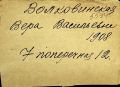 Волковинская
Вера Васильевна
1908
7 поперечная 12